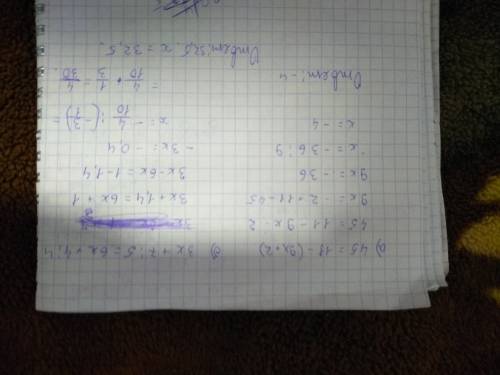 а) 45 = 11 - (9x+2)
45 = 11 - 9x - 2
9x = - 2 + 11 - 45
9x = - 36
x = - 36 : 9
x = - 4
Ответ: - 4
б) 3x + 7 : 5 = 6x + 4 : 4
3x + 1,4 = 6x + 1
3x - 6x = 1 - 1,4
- 3x = - 0,4
x = - 4/10 : (- 3/1) =
= 4/10 * 1/3 = 4/30
Ответ: 32,5. x = 32,5.